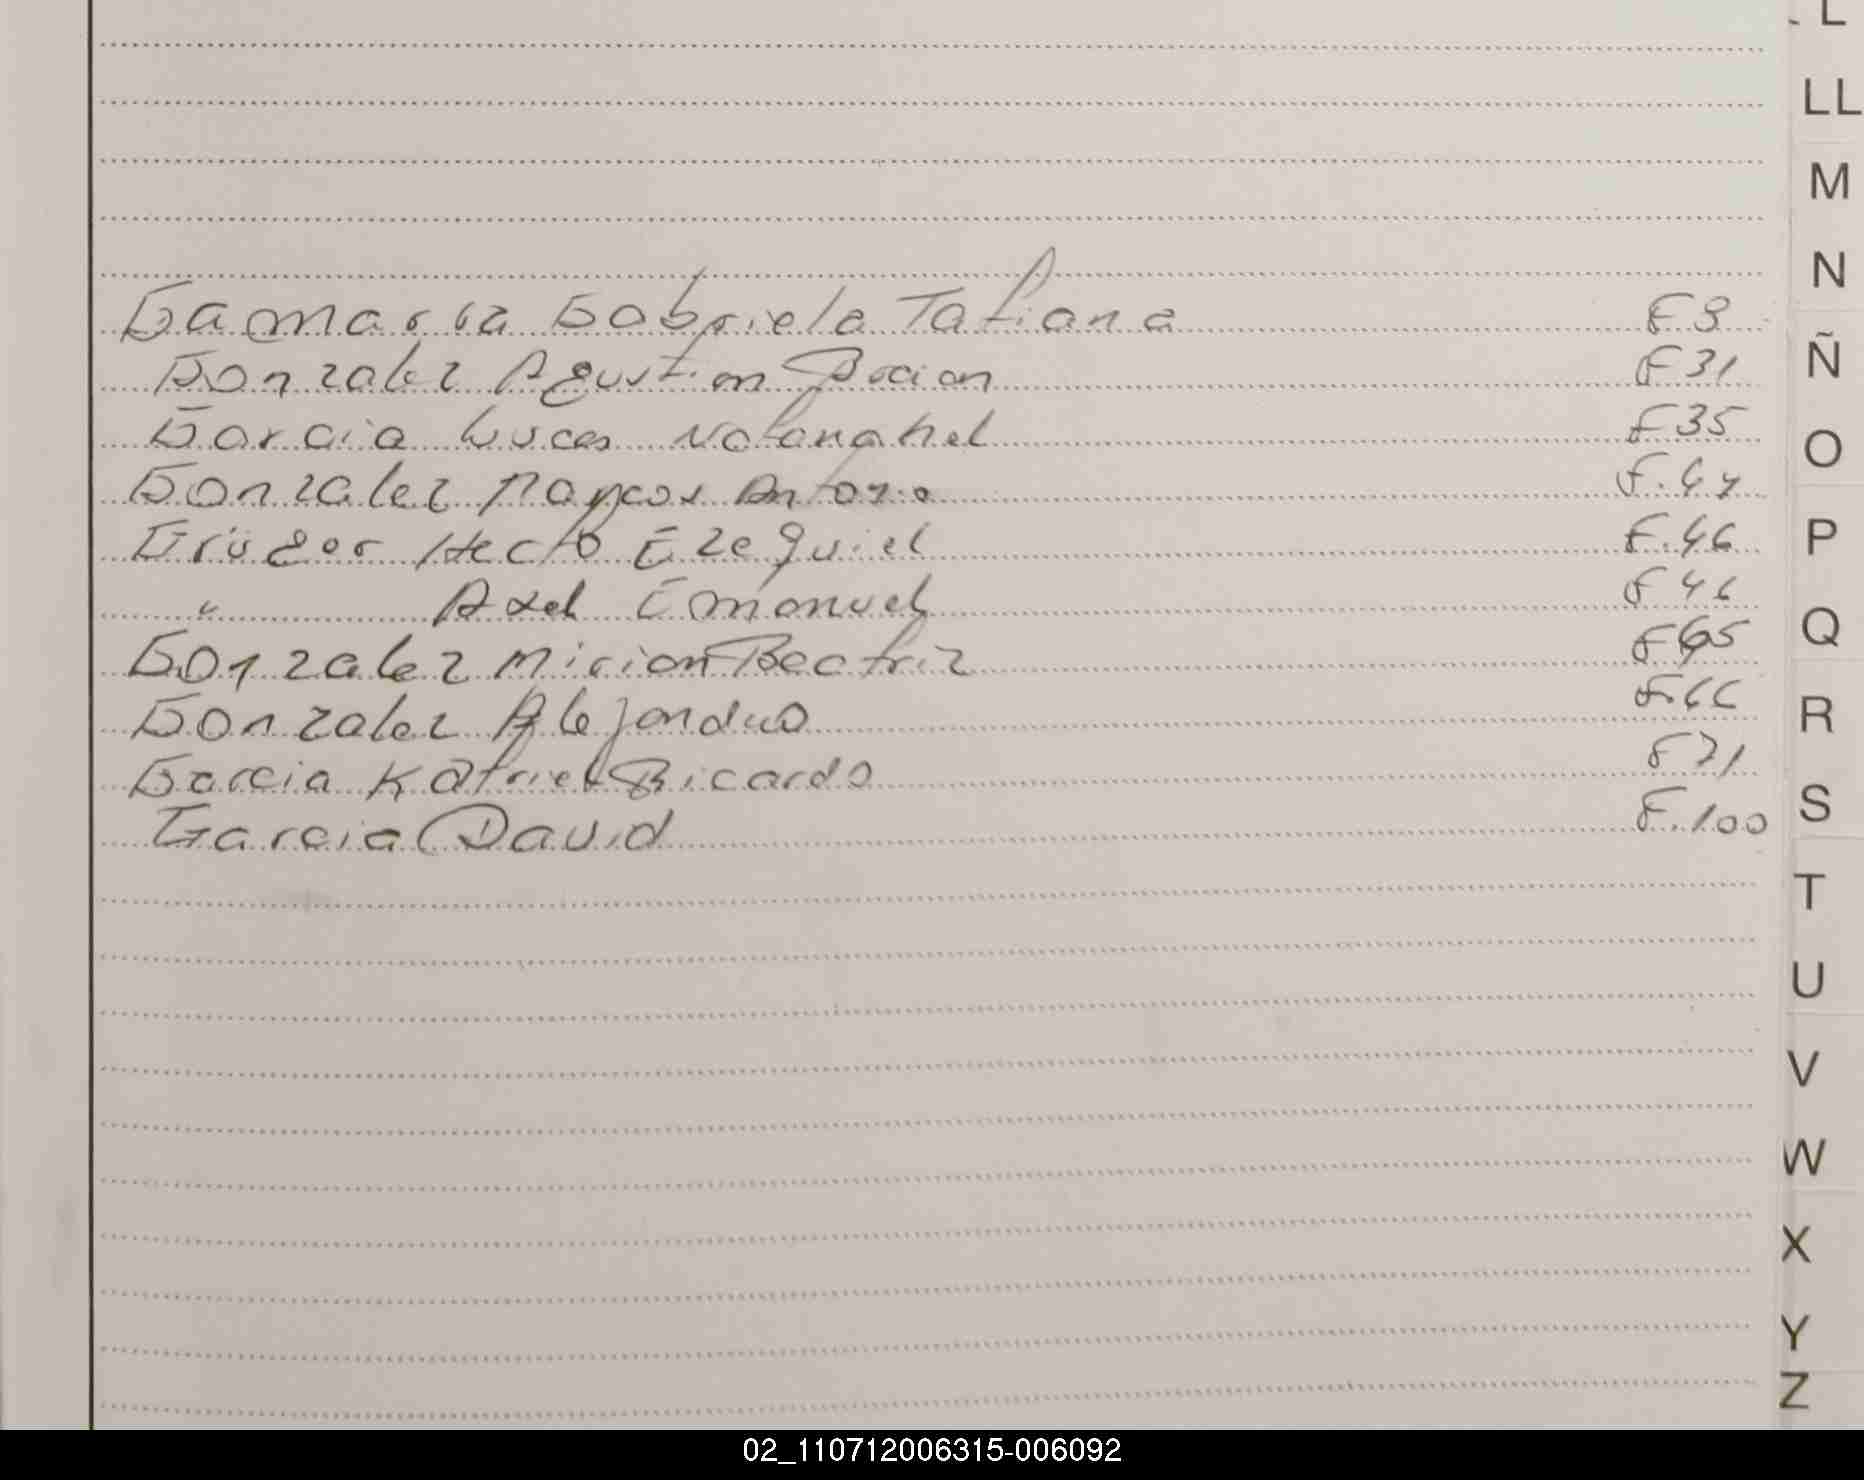 Gamarra Gabriela Tatiana F3
Gonzalez Agustion Brian F31
Garcia Lucas Natanahel F35
Gonzalez Marcos Antonio F.44
Grüger Hecto Ezequiel F.46
" Axel Emanuel F46
Gonzalez Mirian Beatriz F65
Gonzalez Alejandro F.66
Garcia Katriel Ricardo F71
Garcia David F.100
L
LL
M
N
Ñ
O
P
Q
R
S
T
U
V
W
X
Y
Z
02_110712006315-006092